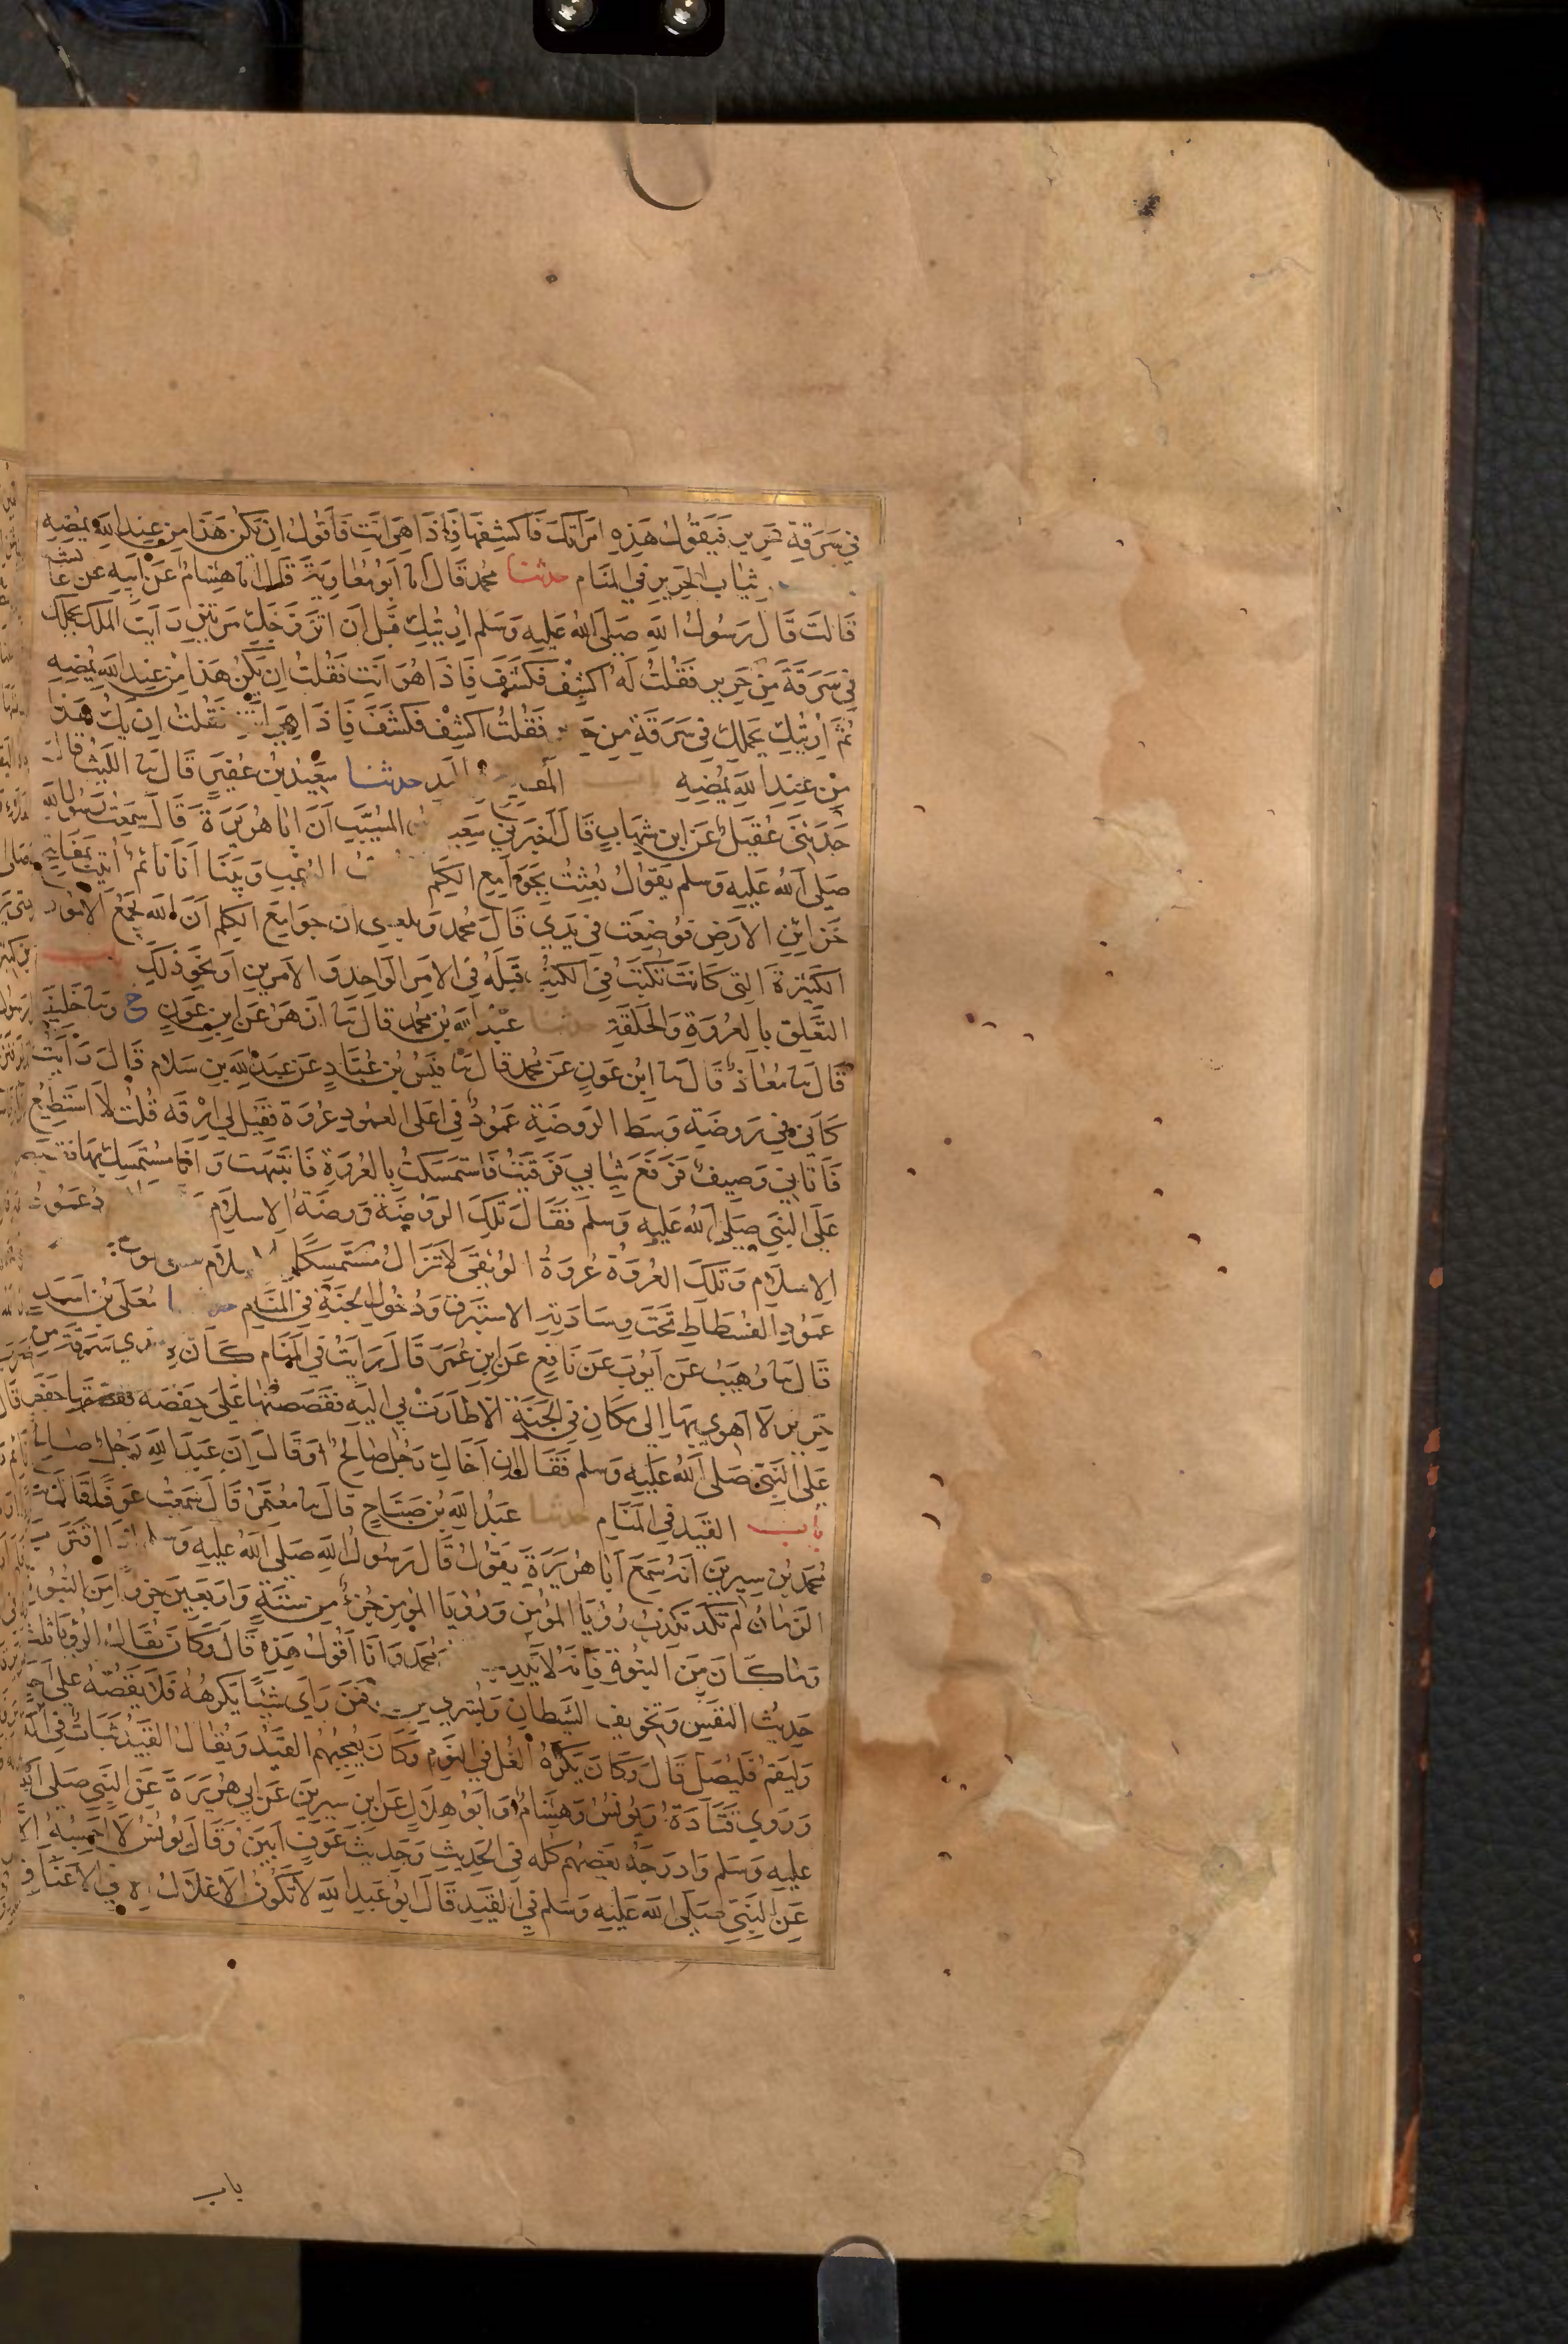 في سرقة حرير فيقول هذه امراتك فاكشفها فاذا هي انت فاقول ان يكن هذا من عند الله يمضه
ثياب الحرير في المنام حدثنا محمد قال انا ابو معاوية قال انا هشام عن ابيه عن عائشة
قالت قال رسول الله صلى الله عليه وسلم اريتك قبل ان اتزوجك مرتين رايت الملك يحملك
في سرقة من حرير فقلت له اكشف فكشف فاذا هو انت فقلت ان يكن هذا من عند الله يمضه
ثم اريتك يحملك في سرقة من فقلت اكشف فكشف فاذا هي انت فقلت ان يك هذا
من عند الله يمضه باب اليد حدثنا سعيد بن عفير قال نا الليث قال
حدثني عقيل عن ابن شهاب قال اخبرني سعيد بن المسيب ان ابا هريرة قال سمعت رسول الله
صلى الله عليه وسلم يقول بعثت بجوامع الكلم وبينا انا نائم اتيت بمفاتيح
خزائن الارض فوضعت في يدي قال محمد وبلغني ان جوامع الكلم ان الله يجمع الامور
الكثيرة التي كانت تكتب في الكتب قبله في الامر الواحد والامرين او نحو ذلك باب
التعلق بالعروة والحلقة حدثنا عبد الله بن محمد قال نا ازهر عن ابن عون ح ونا خليفة
قال نا معاذ قال نا ابن عون عن محمد قال نا قيس بن عباد عن عبد الله بن سلام قال رايت
كاني في روضة وسط الروضة عمود في اعلى العمود عروة فقيل لي ارقه قلت لا استطيع
فاتاني وصيف فرفع ثيابي فرقيت فاستمسكت بالعروة فانتبهت وانا مستمسك بها
على النبي صلى الله عليه وسلم فقال تلك الروضة روضة الاسلام عمود
الاسلام وتلك العروة عروة الوثقى لا تزال مستمسكا
عمود الفسطاط تحت وسادته الاستبرق ودخول الجنة في المنام معلى بن اسد
قال نا وهيب عن ايوب عن نافع عن ابن عمر قال رايت في المنام كان في يدي سرقة من
حرير لا اهوي بها الى مكان في الجنة الا طارت بي اليه فقصصتها على حفصة فقصتها حفصة
على النبي صلى الله عليه وسلم فقال ان اخاك رجل صالح او قال ان عبد الله رجل صالح
باب القيد في المنام حدثنا عبد الله بن صباح قال نا معتمر قال سمعت عوفا قال نا
محمد بن سيرين انه سمع ابا هريرة يقول قال رسول الله صلى الله عليه اذا اقترب
الزمان لم تكد تكذب رؤيا المؤمن ورؤيا المؤمن جزء من ستة واربعين جزوا من النبوة
وما كان من النبوة فانه لا محمد وانا اقول هذه قال وكان يقال الرؤيا ثلث
حديث النفس وتخويف الشيطان وبشرى فمن راى شيئا يكرهه فلا يقصه على احد
وليقم فليصل قال وكان يكره الغل في النوم وكان يعجبهم القيد ويقال القيد ثبات في
وروى قتادة ويونس وهشام وابو هلال عن ابن سيرين عن ابي هريرة عن النبي صلى الله
عليه وسلم وادرجه بعضهم كله في الحديث وحديث عوف ابين وقال يونس لا احسبه الا
عن النبي صلى الله عليه وسلم في القيد قال ابو عبد الله لا تكون الاغلال الا في الاعناق
باب